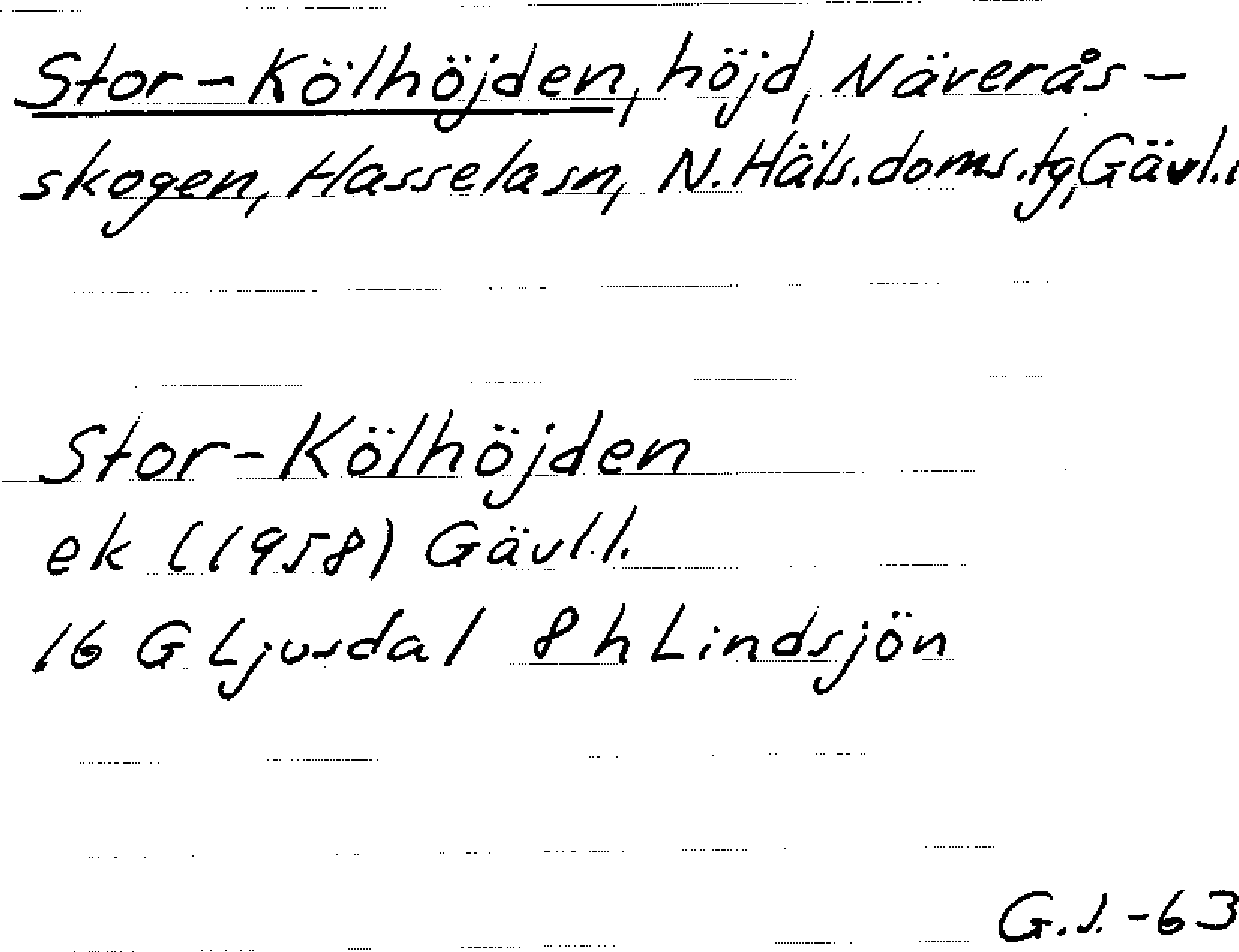 Stor-Kölhöjden, höjd, Näverås-
skogen, Hasselasn, N. Häls. doms.tg, Gävl.l
Stor-Kölhöjden
ek (1958) Gävl.l.
16 G Ljusdal 8 h Lindsjön
G.J. -63